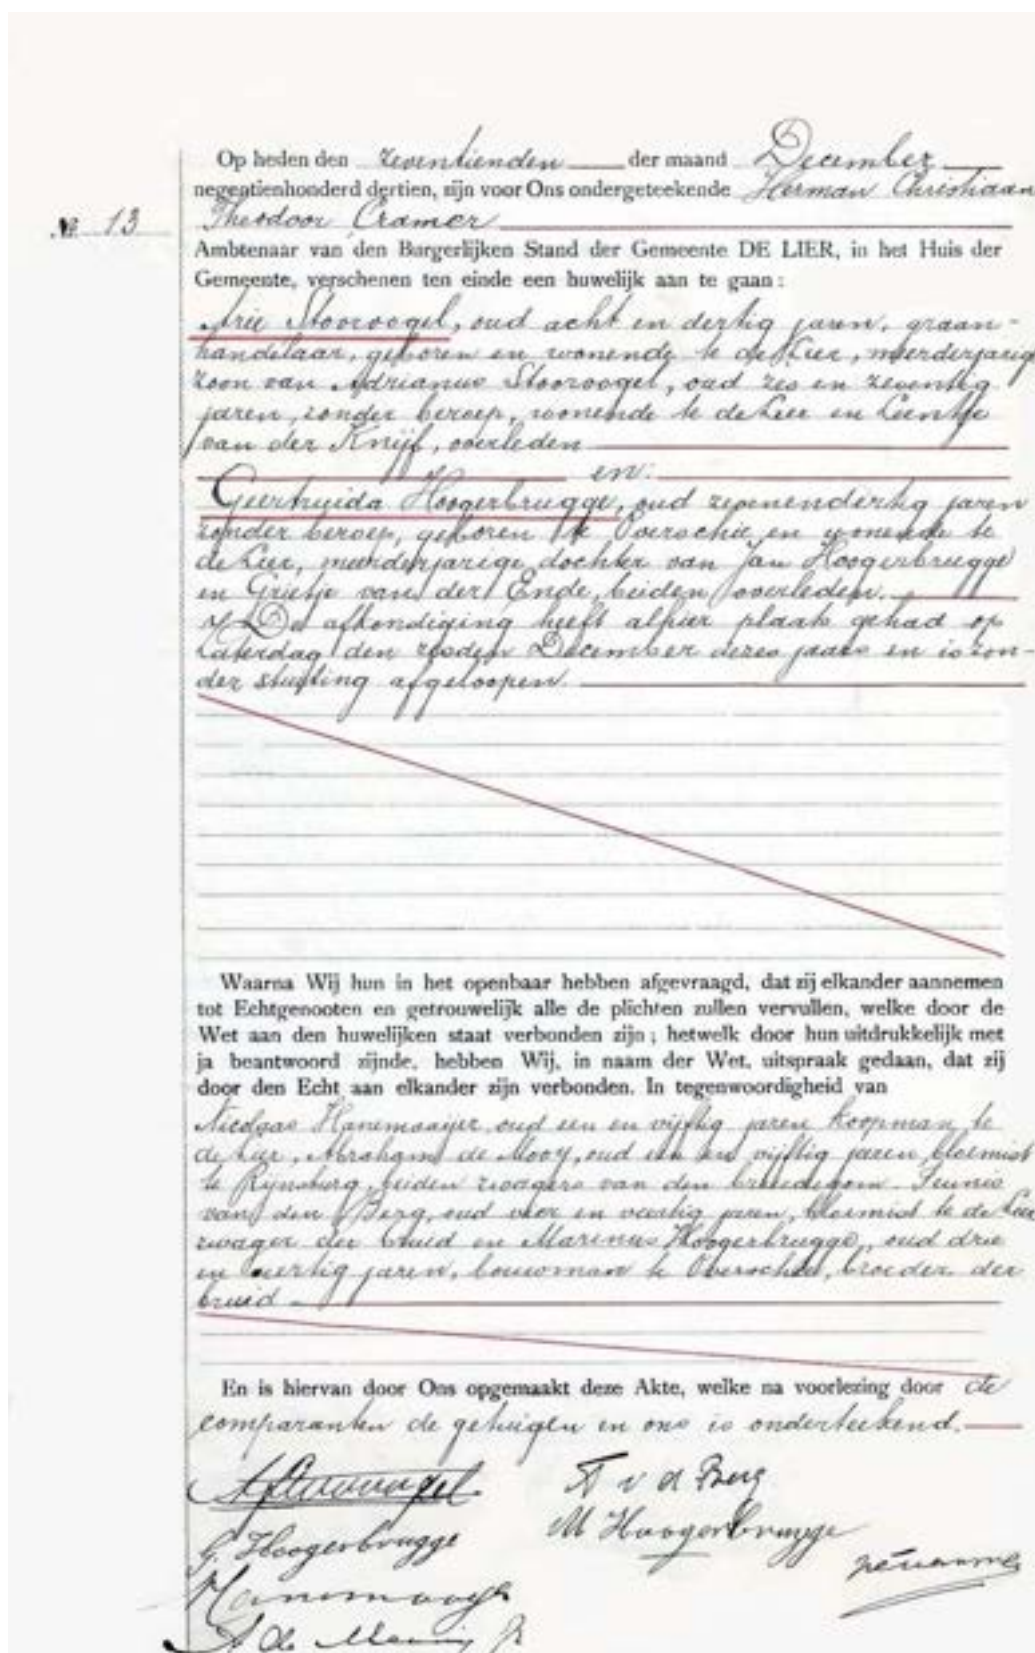 Op heden den zeventienden der maand December
negentienhonderd dertien, zijn voor Ons ondergeteekende Herman Christiaan
№ 13 Theodoor Cramer
Ambtenaar van den Burgerlijken Stand der Gemeente DE LIER, in het Huis der
Gemeente, verschenen ten einde een huwelijk aan te gaan:
Arie Stoorvogel, oud acht en dertig jaren, graan-
handelaar, geboren en wonende te de Lier, meerderjarige
zoon van Adrianus Stoorvogel, oud zes en zeventig
jaren, zonder beroep, wonende te de Lier en Leentje
van der Knijf, overleden
en:
Geertruida Hoogerbrugge, oud zevenendertig jaren
zonder beroep, geboren te Overschie en wonende te
de Lier, meerderjarige dochter van Jan Hoogerbrugge
en Grietje van der Ende, beiden overleden.
De afkondiging heeft alhier plaats gehad op
Zaterdag den zesden December dezes jaars en is zon-
der stuiting afgeloopen.
Waarna Wij hun in het openbaar hebben afgevraagd, dat zij elkander aannemen
tot Echtgenooten en getrouwelijk alle de plichten zullen vervullen, welke door de
Wet aan den huwelijken staat verbonden zijn; hetwelk door hun uitdrukkelijk met
ja beantwoord zijnde, hebben Wij, in naam der Wet, uitspraak gedaan, dat zij
door den Echt aan elkander zijn verbonden. In tegenwoordigheid van
Nicolaas Hanemaaijer, oud een en vijftig jaren koopman te
de Lier, Abraham de Mooy, oud een en vijftig jaren, bloemist
te Rijnsburg, beiden zwagers van den bruidegom. Teunis
van den Berg, oud vier en veertig jaren, bloemist te de Lier
zwager der bruid en Marinus Hoogerbrugge, oud drie
en veertig jaren, bouwman te Overschie, broeder der
bruid
En is hiervan door Ons opgemaakt deze Akte, welke na voorlezing door de
comparanten de getuigen en ons is onderteekend.
A Stoorvogel T v d Berg
G. Hoogerbrugge M Hoogerbrugge
Hanemaayer
A de Mooij Jr